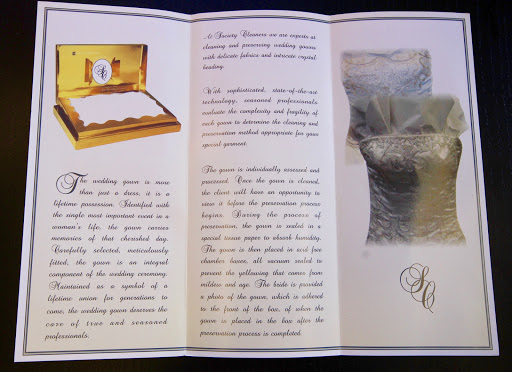 The wedding gown is more
than just a dress, it is a
lifetime possession. Identified with
the single most important event in a
woman's life, the gown carries
memories of that cherished day.
Carefully selected, meticulously
fitted, the gown is an integral
component of the wedding ceremony.
Maintained as a symbol of a
lifetime union for generations to
come, the wedding gown deserves the
care of true and seasoned
professionals.
At Society Cleaners we are experts at
cleaning and preserving wedding gowns
with delicate fabrics and intricate crystal
beading.
With sophisticated, state-of-the-art
technology, seasoned professionals
evaluate the complexity and fragility of
each gown to determine the cleaning and
preservation method appropriate for your
special garment.
The gown is individually assessed and
processed. Once the gown is cleaned,
the client will have an opportunity to
view it before the preservation process
begins. During the process of
preservation, the gown is sealed in a
special tissue paper to absorb humidity.
The gown is then placed in acid free
chamber boxes, all vacuum sealed to
prevent the yellowing that comes from
mildew and age. The bride is provided
a photo of the gown, which is adhered
to the front of the box, of when the
gown is placed in the box after the
preservation process is completed.
SC